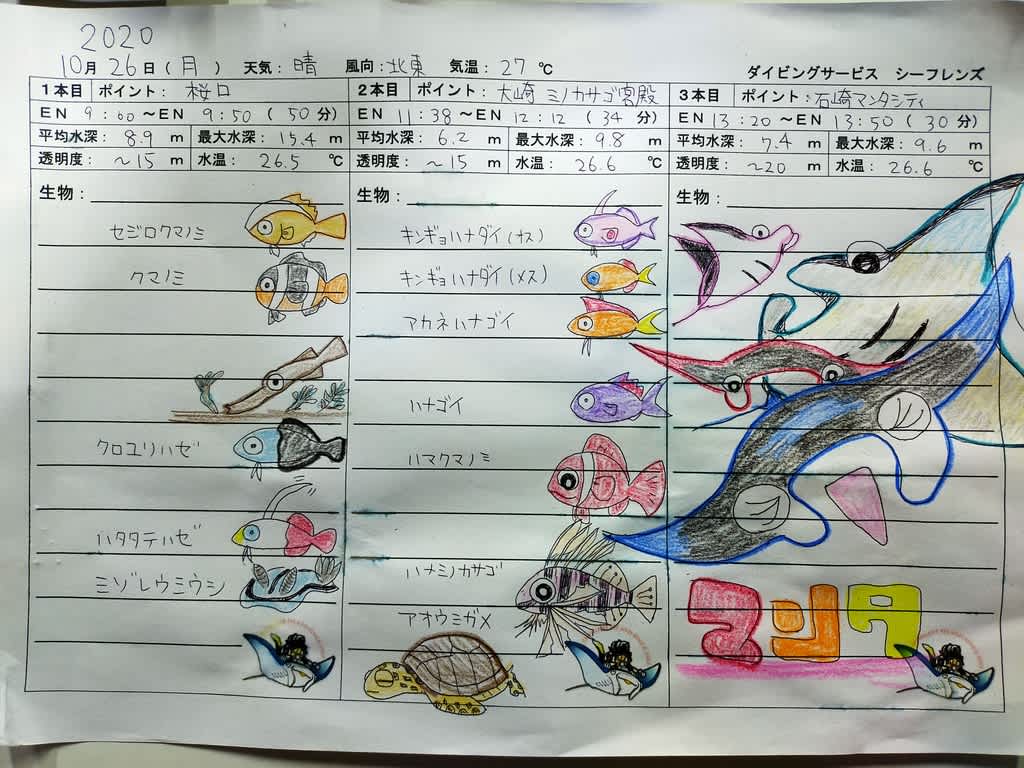 2020
10月 26日(月) 天気:晴 風向:北東 気温:27℃
ダイビングサービス シーフレンズ
1本目 ポイント: 桜口
EN 9:00～EN 9:50(50分)
平均水深: 8.9 m 最大水深: 15.4 m
透明度: ～15 m 水温: 26.5 ℃
生物:
セジロクマノミ
クマノミ
クロユリハゼ
ハタタテハゼ
ミゾレウミウシ
2本目 ポイント: 大崎 ミノカサゴ宮殿
EN 11:38～EN 12:12(34分)
平均水深: 6.2 m 最大水深: 9.8 m
透明度: ～15 m 水温: 26.6 ℃
生物:
キンギョハナダイ(オス)
キンギョハナダイ(メス)
アカネハナゴイ
ハナゴイ
ハマクマノミ
ハナミノカサゴ
アオウミガメ
3本目 ポイント: 石崎マンタシティ
EN 13:20～EN 13:50(30分)
平均水深: 7.4 m 最大水深: 9.6 m
透明度: ～20 m 水温: 26.6 ℃
生物:
マンタ